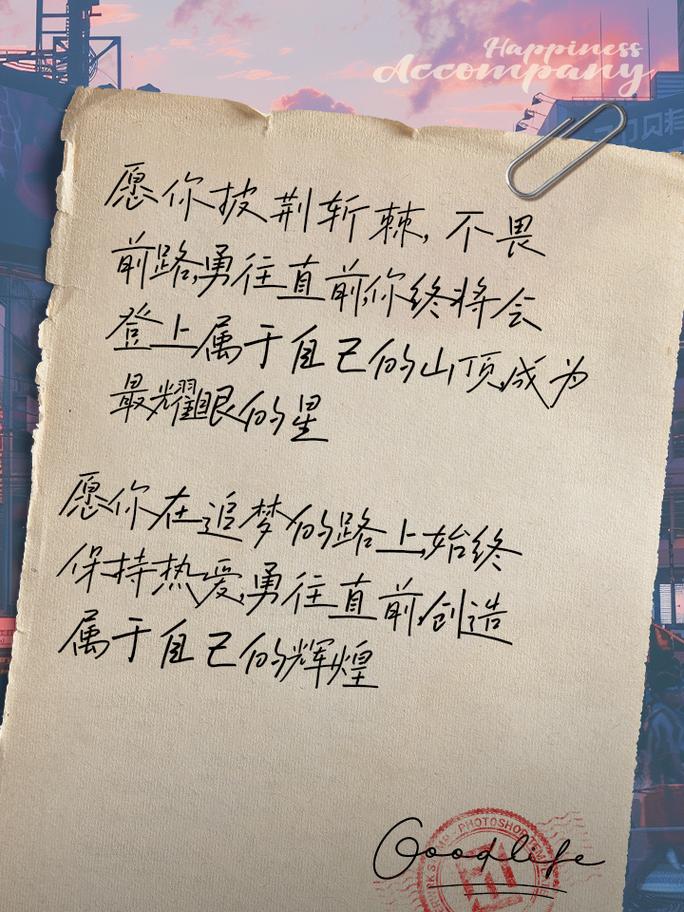 Happiness
Accompany
愿你披荆斩棘,不畏
前路,勇往直前,你终将会
登上属于自己的山顶,成为
最耀眼的星
愿你在追梦的路上,始终
保持热爱,勇往直前,创造
属于自己的辉煌
PHOTOSHOP
Goodlife